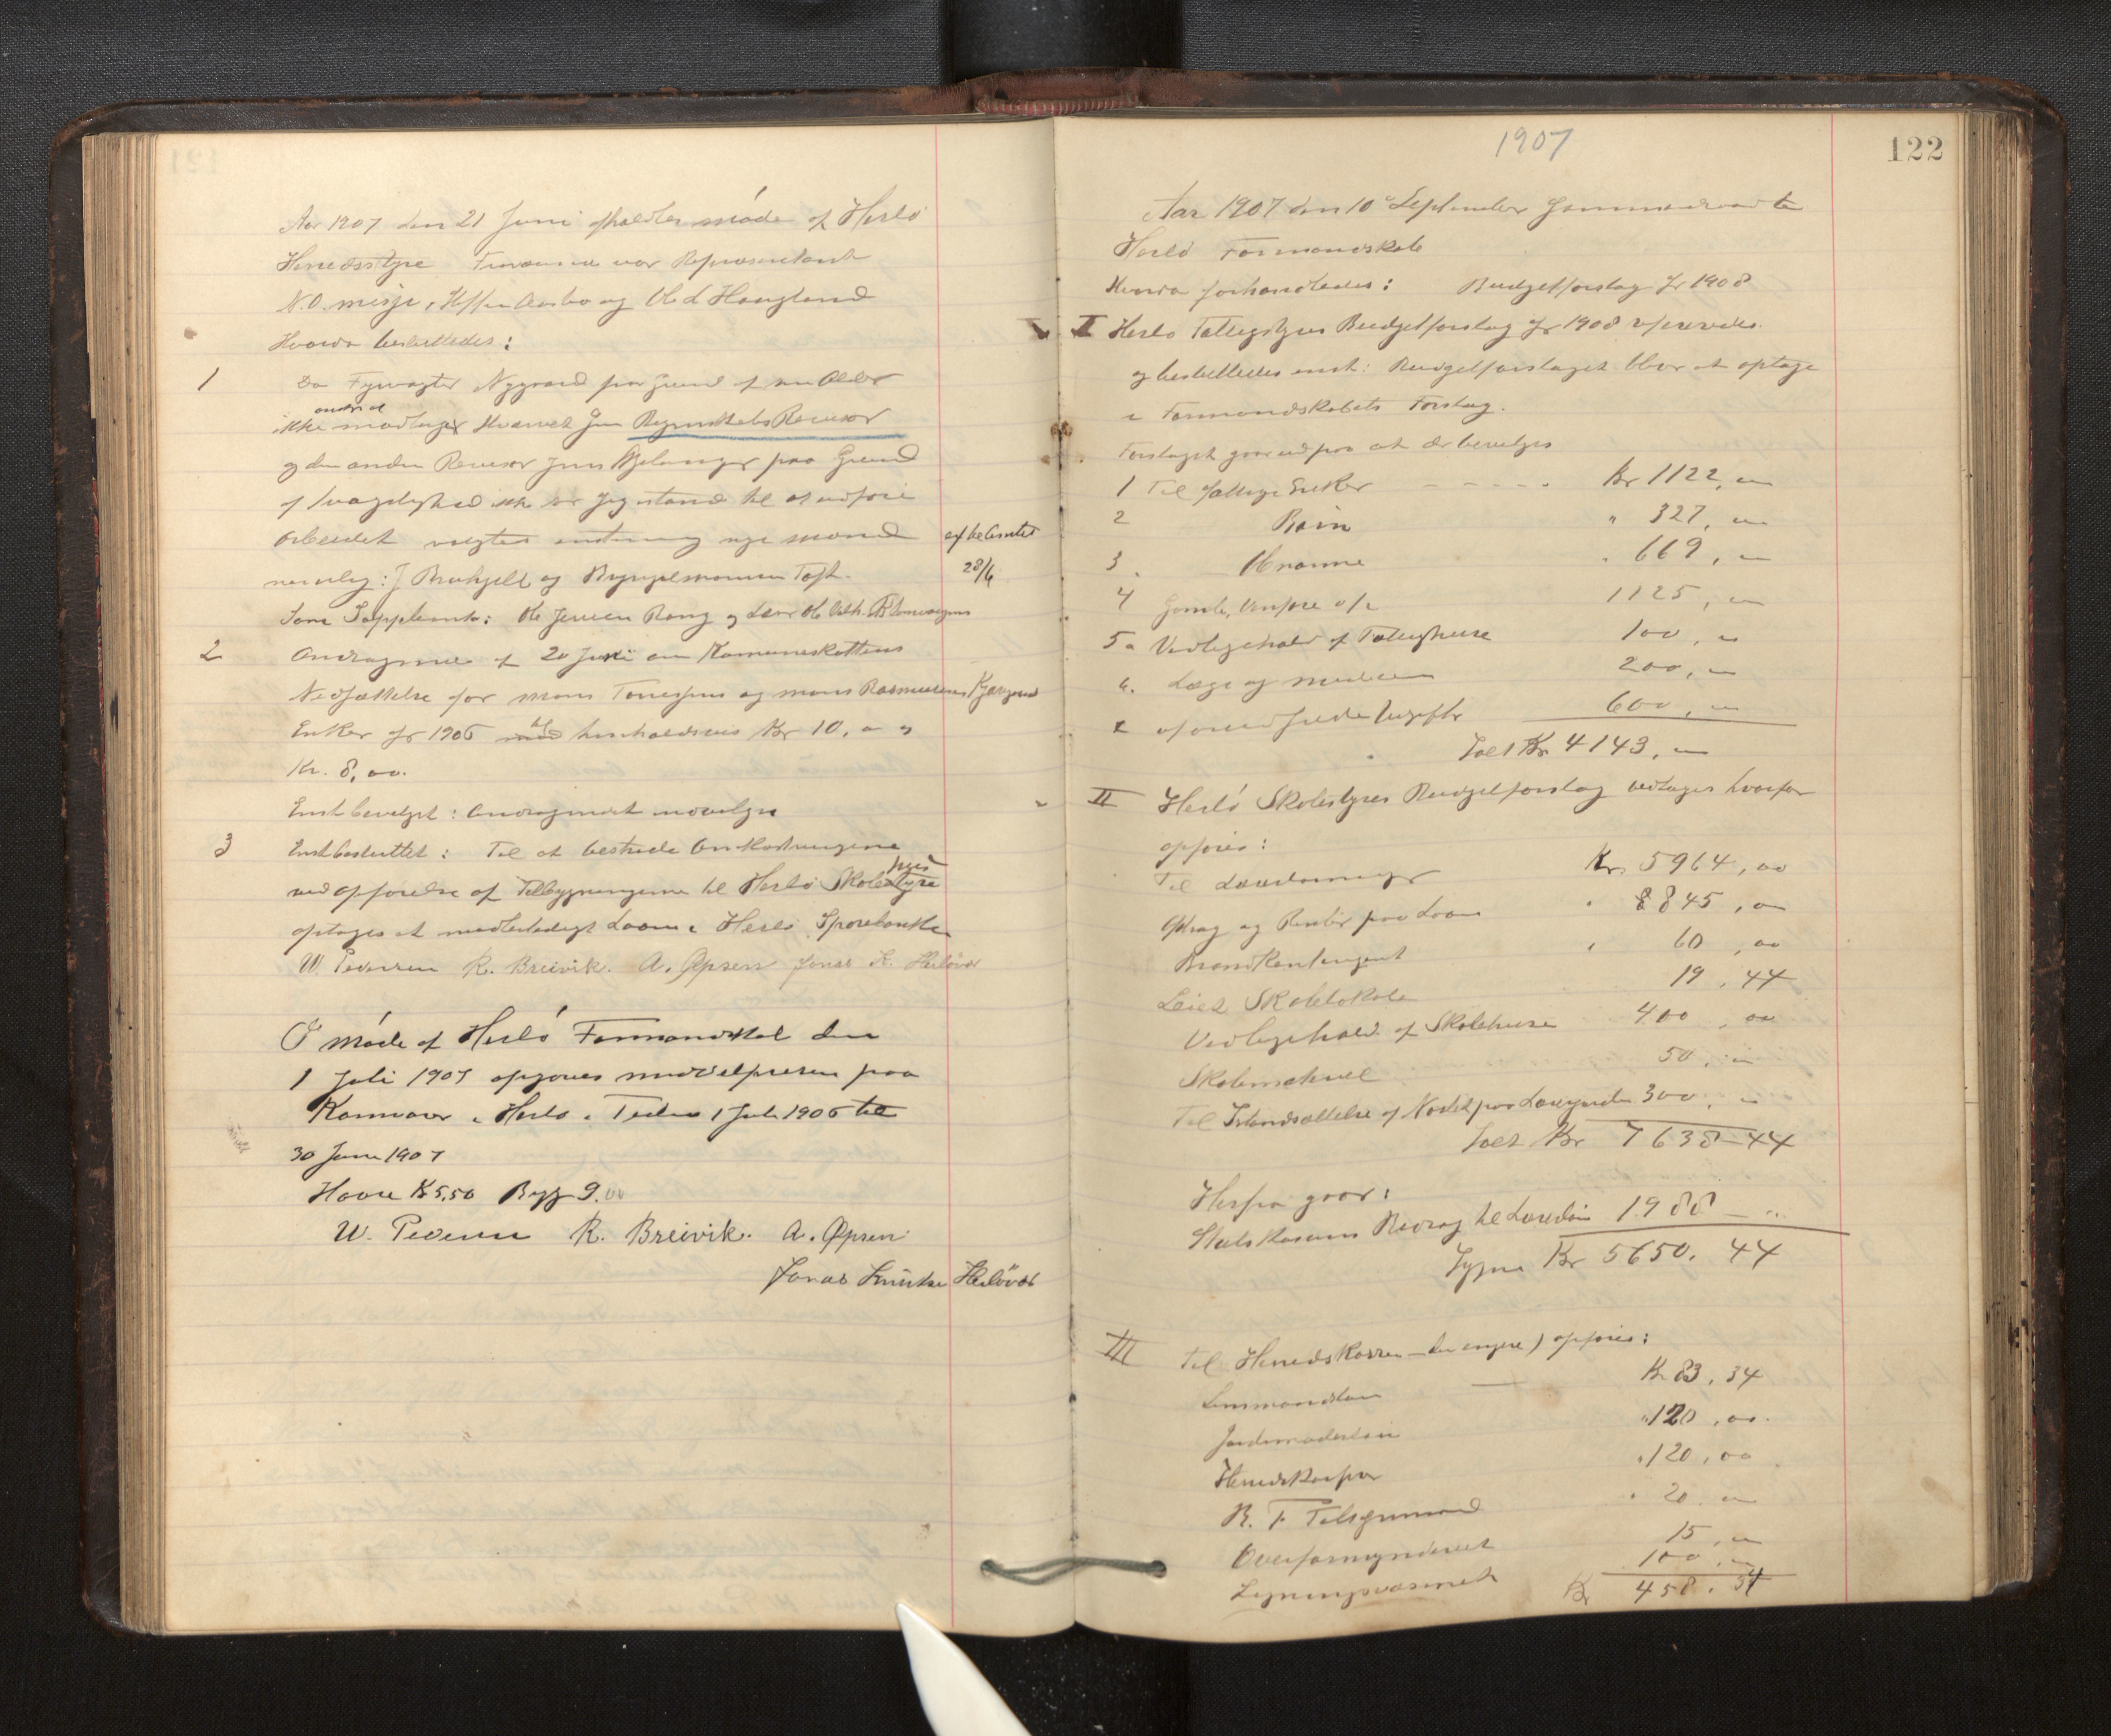 Aar 1907 den 21 Juni afholdtes møde af Herlø
Herredsstyre Fraværende var Repræsentant
N.O. misje, Steffen Aasbø og Ole L Haugland
Hvorda besluttedes:
1 Da Fyrvogter Nygaard paa Grund af sin Alder
ikke ønsker at modtager Hvervet som Regnskabs Revisor
og den anden Revisor Jens Mjelanger paa Grund
af Svagelighed ikke er i stand til at udføre
Arbeidet valgtes enstemig nye mænd
nemlig: J Brakjell og Bygselmanden Toft.
exp til Amtet
28/6
Som Supleant: Ole Jensen Rong og
2 Andragende af 20 Juni om Kommuneskattens
Nedsættelse for mons Tonesens og mons Rasmussens Kjærgaard
Enker for 1906 med til henholdsvis Kr 10,00 og
Kr. 8,00.
Enst bevilget: Andragendet indvilges
3 Enst besluttet: Til at bestride Omkostningerne
ved opførelse af Tilbygningerne til Herlø Skolestyre huse
optages et midlertidigt Laan i Herlø Sparebank
W. Pedersen R. Breivik. A. Øpsen Jonas K. Herløvær
I møde af Herlø Formandskab den
1 Juli 1907 opgjoves middelprisen paa
Kornvarer i Herlø i Tiden 1 Juli 1906 til
30 Juni 1907
Havre Kr 5,50 Byg 9.00
W. Pedersen R. Breivik. A. Øpsen
Jonas Knutsen Herløvær
1907
122
Aar 1907 den 10 September sammentraadte
Herlø Formandskab
Hvorda forhandledes: Budgetforslag for 1908
I Herlø Fattigstyres Budgetforslag for 1908 refereredes.
og besluttedes enst: Budgetforslaget blir at optage
i Formandskabets Forslag.
Forslaget gaar ud paa at der bevilges
1 Til fattige Enker - - - - - Kr 1122,00
2 Børn " 327,00
3 Kranne " 669,00
4 Gamle, Vanføre o/s 1125,00
5 a Vedligehold af Fattighuse 100,00
6. Læge og medicin 200,00
uforudseede Udgifter 600,00
Ialt Kr 4143,00
II Herlø Skolestyres Budgetforslag vedtages hvorfor
opføres:
Til Lærelønninger Kr. 5964,00
Afdrag og Renter paa Laan " 845,00
Brandkontingent " 60,00
Leiet Skolelokale 19,44
Vedligehold af Skolehuse 400,00
Skolemateriel 50,00
Til Istandsættelse af Nøstet paa Lærergaarden 300,00
Ialt Kr 7638-44
Herfra gaar:
Statskassens Bidrag til Lærerløn 1988 - "
Igjen Kr 5650.44
III Til Herredskassen - den engere) opføres:
Lensmandsløn Kr 83,34
Jordmoderløn " 120,00.
Herredskasserer " 120,00
R. T. Telsgrunnand " 20,00
Overformynderiet 15,00
Ligningsvæsenet 100,00
Kr 458.34